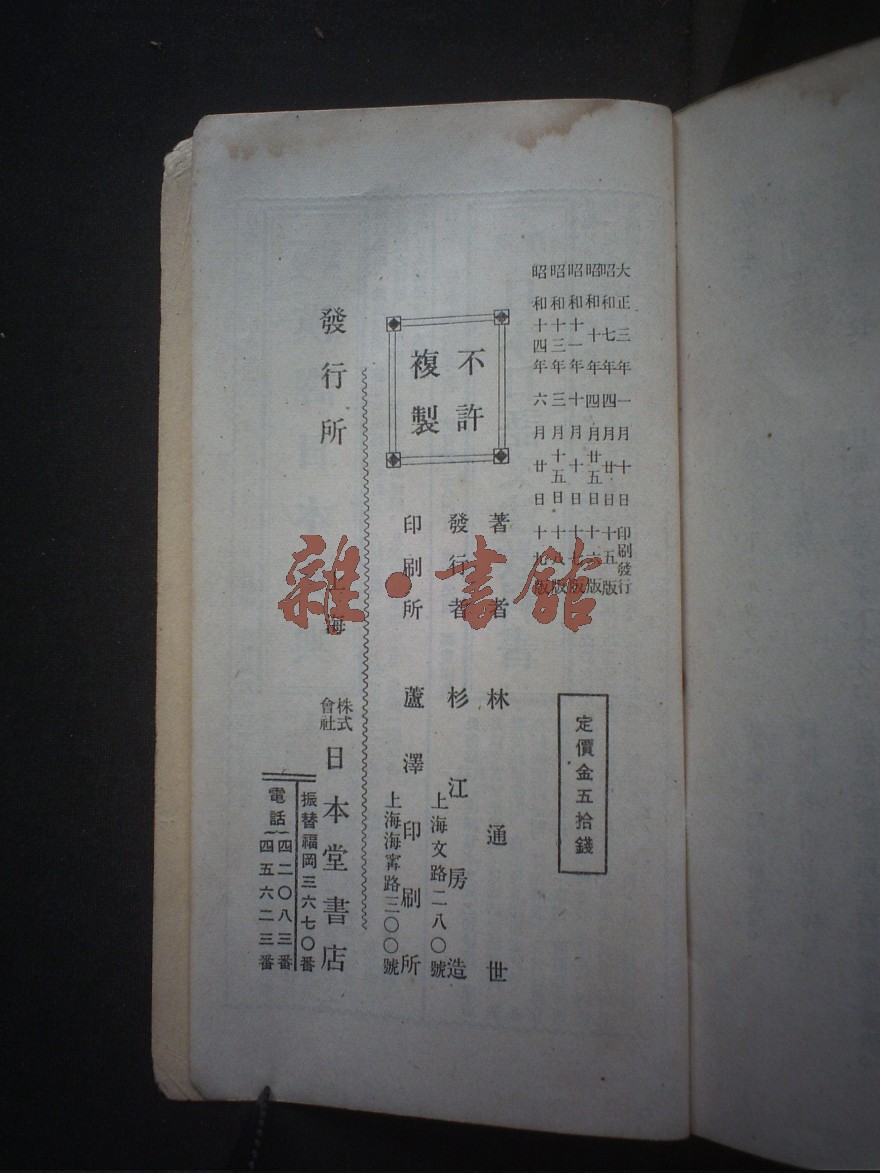 大正三年一月十日印刷發行
昭和七年四月廿日十五版
昭和十年四月廿五日十六版
昭和十一年十月十日十七版
昭和十三年三月十五日十八版
昭和十四年六月廿日十九版
定價金五拾錢
不許
複製
著者 林通世
發行者 杉江房造
上海文路二八〇號
印刷所 蘆澤印刷所
上海海寗路三〇〇號
發行所 上海 株式會社 日本堂書店
振替福岡三六七〇番
電話 四二〇八三番
四五六二三番
雜·書館